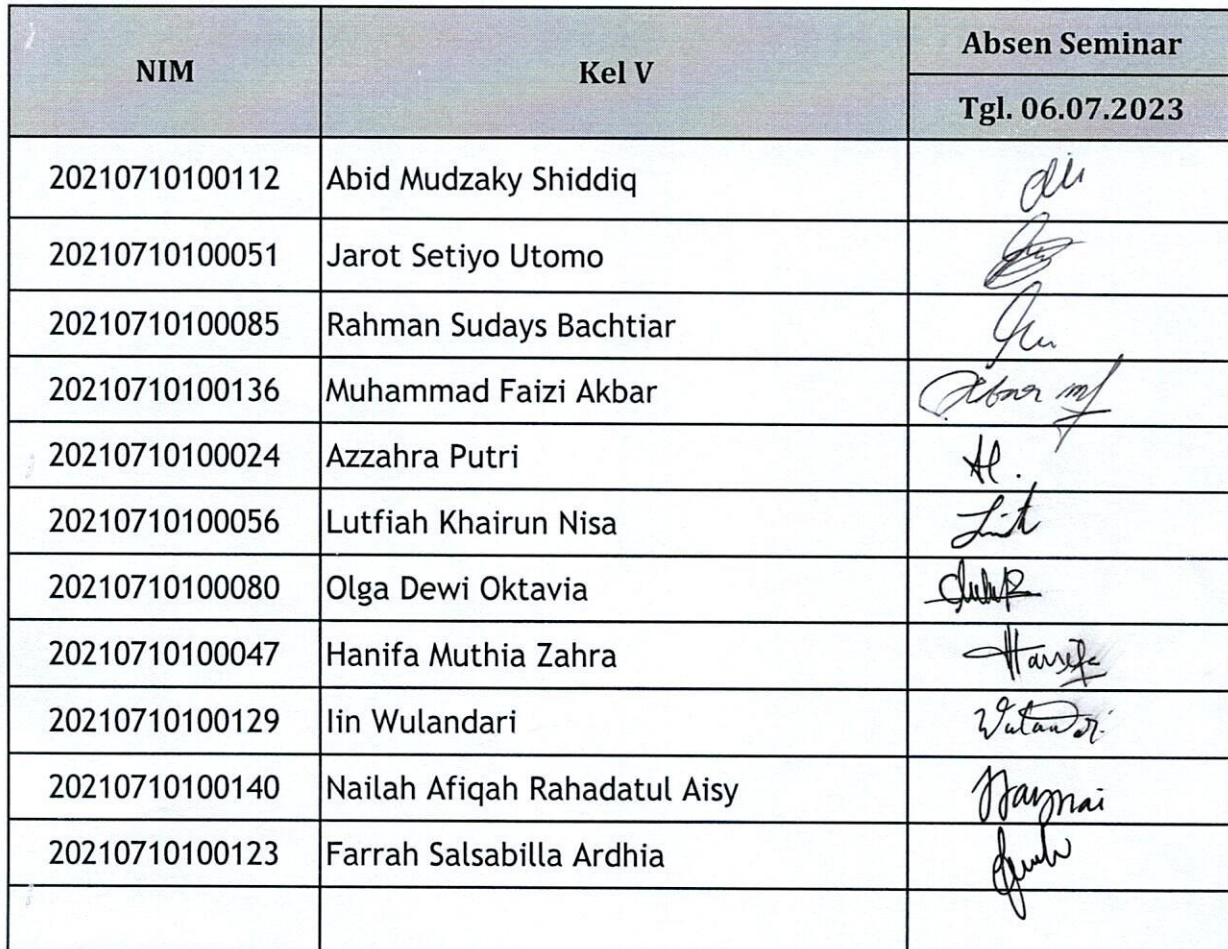 NIM Kel V Absen Seminar
Tgl. 06.07.2023
20210710100112 Abid Mudzaky Shiddiq
20210710100051 Jarot Setiyo Utomo
20210710100085 Rahman Sudays Bachtiar
20210710100136 Muhammad Faizi Akbar
20210710100024 Azzahra Putri
20210710100056 Lutfiah Khairun Nisa
20210710100080 Olga Dewi Oktavia
20210710100047 Hanifa Muthia Zahra
20210710100129 Iin Wulandari
20210710100140 Nailah Afiqah Rahadatul Aisy
20210710100123 Farrah Salsabilla Ardhia